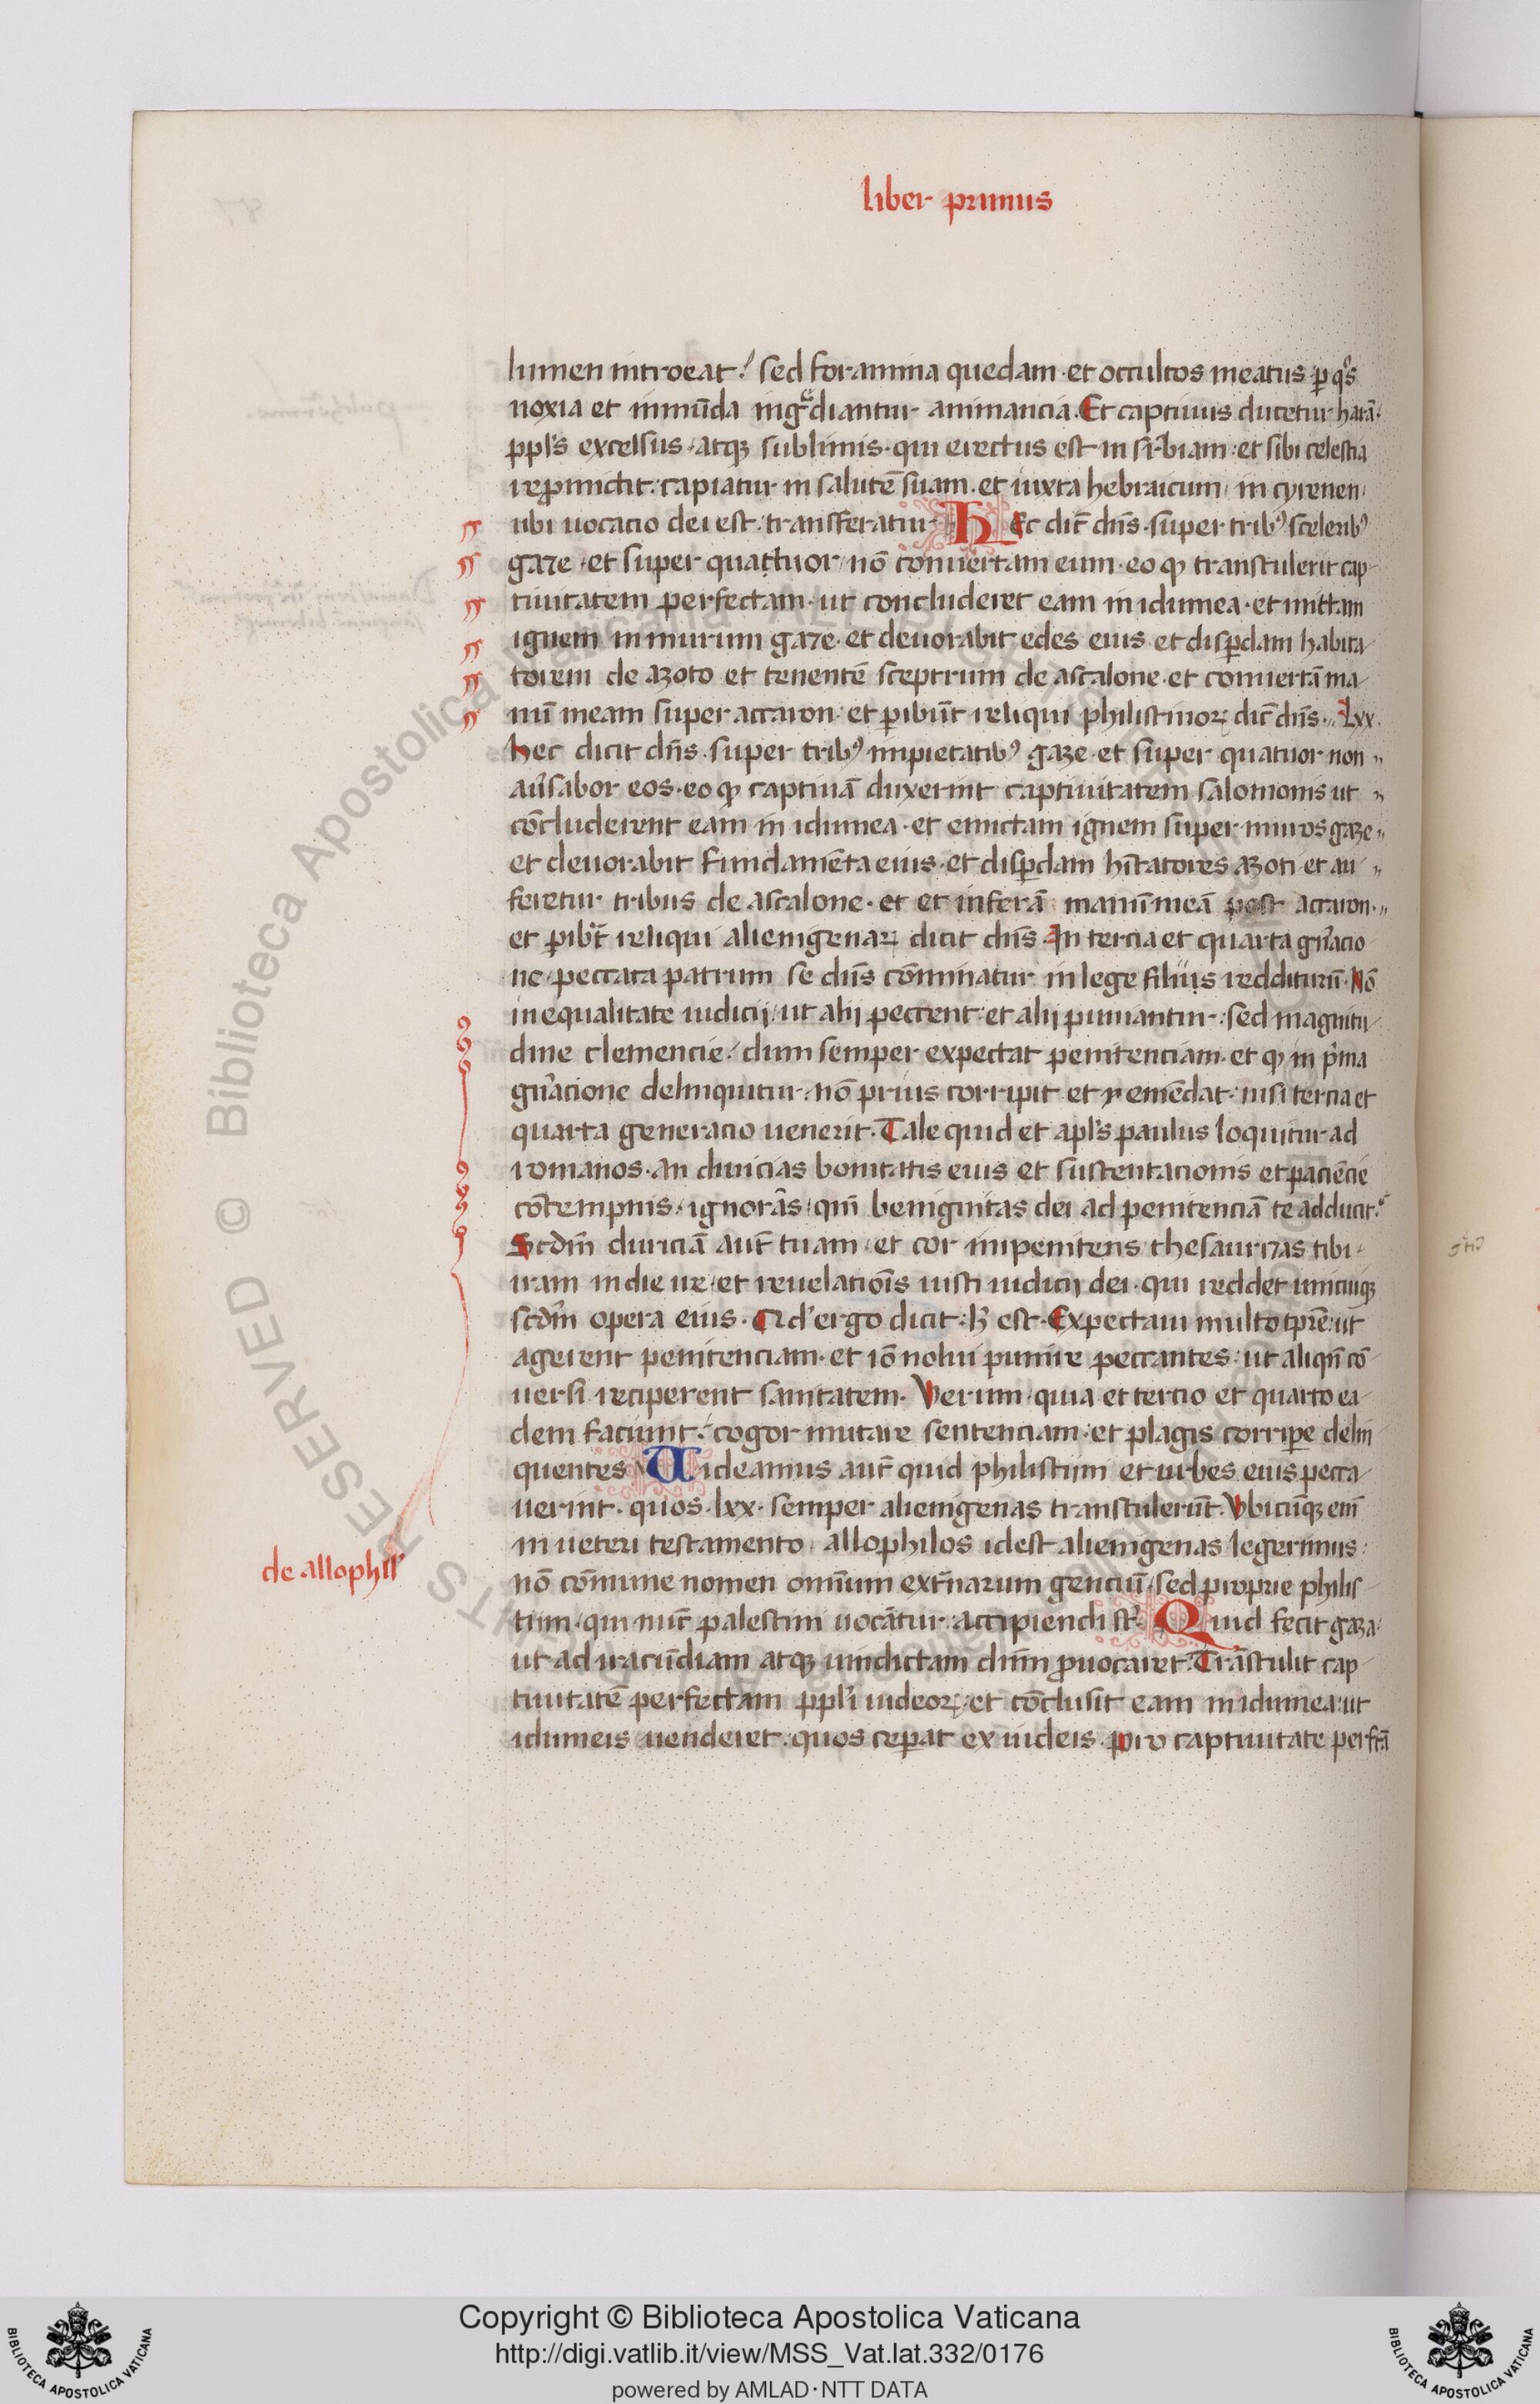 liber primus
lumen introeat? sed foramina quedam. et occultos meatus. ꝑ qͦs
noxia et inmūda ingͤdiantur animancia. Et captiuus ducetur harā.
ppl's excelsus. atqꝫ sublimis. qui erectus est in suꝑbiam. et sibi celestia
reꝓmictit. capiatur in salutē suam. et iuxta hebraicum. in cyrenen.
ubi uocacio dei est. transferatur. Hec dic̄ dn̄s. super tribꝰ sceleribꝰ
gaze. et super quattuor. nō conuertam eum. eo qͦ transtulerit cap-
tiuitatem perfectam. ut concluderet eam in idumea. et mittam
ignem in murum gaze. et deuorabit edes eius. et disꝑdam habita-
torem de azoto et tenentē sceptrum de ascalone. et conuertā ma-
nū meam super accaron. et ꝑibūt reliqui philistinoꝝ dic̄ dn̄s. Lxx.
hec dicit dn̄s. super tribꝰ impietatibꝰ gaze. et super quatuor non
au'sabor eos. eo qͦ captiuā duxerint captiuitatem salomonis ut
cōcluderent eam in idumea. et emictam ignem super muros gaze
et deuorabit fundamēta eius. et disꝑdam hītatores azoti. et au-
feretur tribus de ascalone. et et inferā manū meā post accaron.
et ꝑibt̄ reliqui alienigenaꝝ dicit dn̄s. In tercia et quarta gn̄acio
ne. peccata patrum se dn̄s cōminatur in lege filiis redditurū. Nō
inequalitate iudicij. ut alij peccent. et alij puniantur. sed magnitu-
dine clemencie. dum semper expectat penitenciam. et qͦ in pͥma
gn̄acione delinquitur. nō prius corripit et emēdat. nisi tercia et
quarta generacio uenerit. Tale quid et apl's paulus loquitur ad
romanos. an diuicias bonitatis eius et sustentacionis et paciēcie
cōtempnis. ignorās. qm̄ benignitas dei ad penitenciā te adducit?
Scdm̄ duriciā aut̄ tuam. et cor inpenitens. thesaurizas tibi
iram in die ire. et reuelatiōis iusti iudicij dei. qui reddet unicuiqꝫ
scdm̄ opera eius. Qd' ergo dicit. h' est. Expectaui multo tp̄re. ut
agerent penitenciam. et iō nolui punire peccantes. ut aliqn̄ cō-
uersi reciperent sanitatem. Verum. quia et tercio et quarto ea-
dem faciunt. cogor mutare sentenciam. et plagis corriꝑe delin
quentes. Uideamus aut̄ quid philistiim et urbes eius pecca-
uerint. quos. lxx. semper alienigenas transtulerūt. Vbicūqꝫ em̄
in ueteri testamento. allophilos idest alienigenas legerimus.
de allophil'
nō cōmune nomen omnium ext̄narum genciū. sed proprie philis-
tim. qui nūc palestini uocātur. accipiendi st̄. Quid fecit gaza.
ut ad iracūdiam atqꝫ uindictam dn̄m ꝓuocaret? Trāstulit cap-
tiuitatē perfectam ppl'i iudeoꝝ. et cōclusit eam in idumea. ut
idumeis uenderet. quos ceꝑat ex iudeis. pro captiuitate perfc̄ā
Copyright © Biblioteca Apostolica Vaticana
http://digi.vatlib.it/view/MSS_Vat.lat.332/0176
powered by AMLAD·NTT DATA